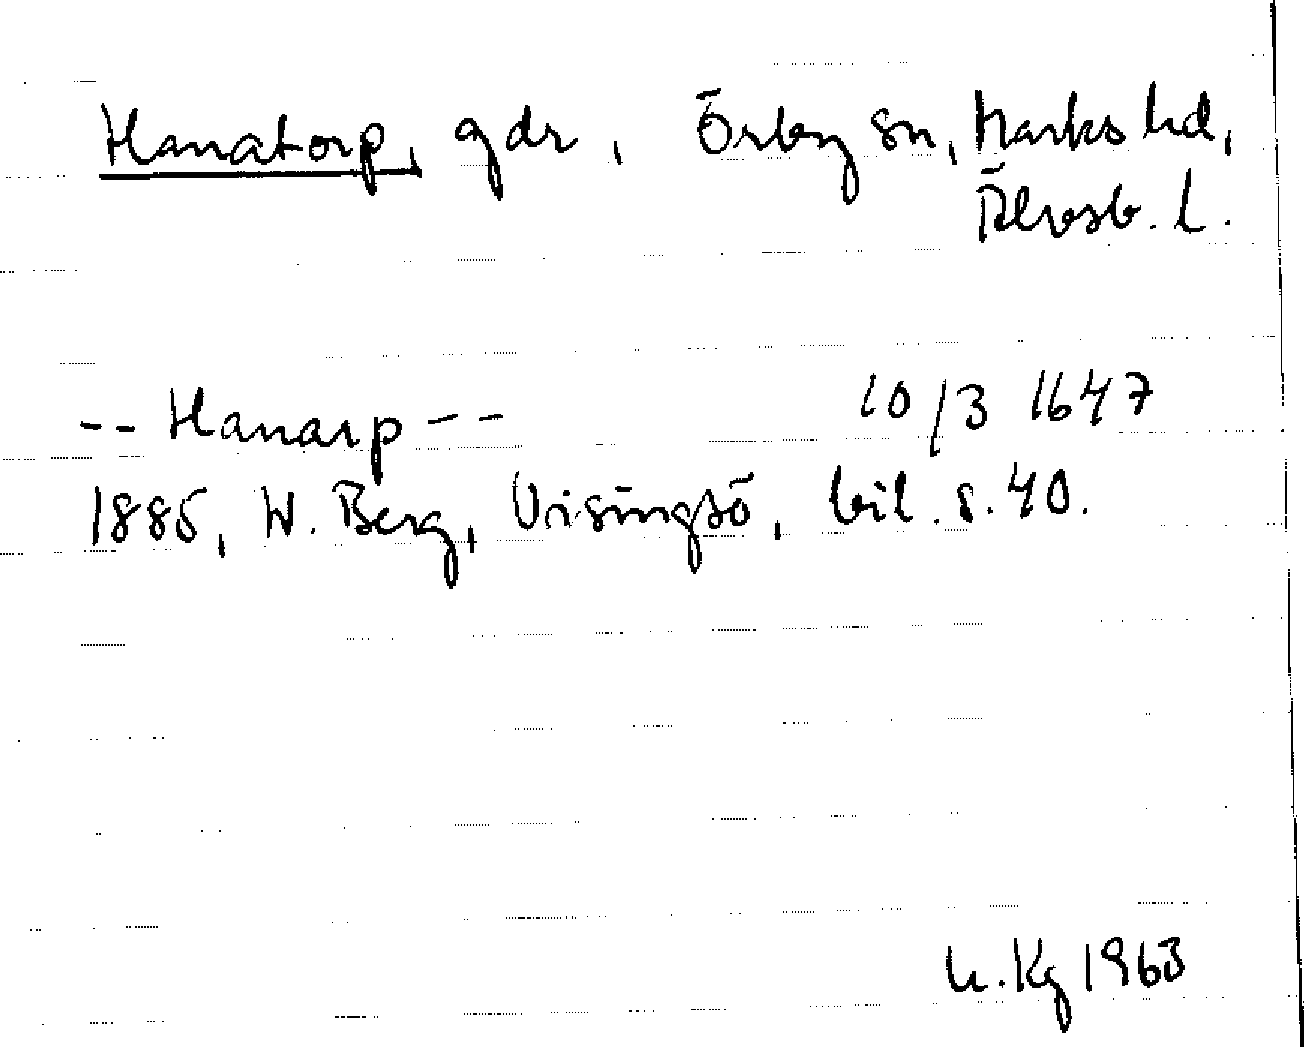 Hanatorp, gdr, Örby sn, Marks hd,
Älvsb. l.
-- Hanarp -- 10/3 1647
1885, W. Berg, Visingsö, bil. s. 40.
h. Kg 1963